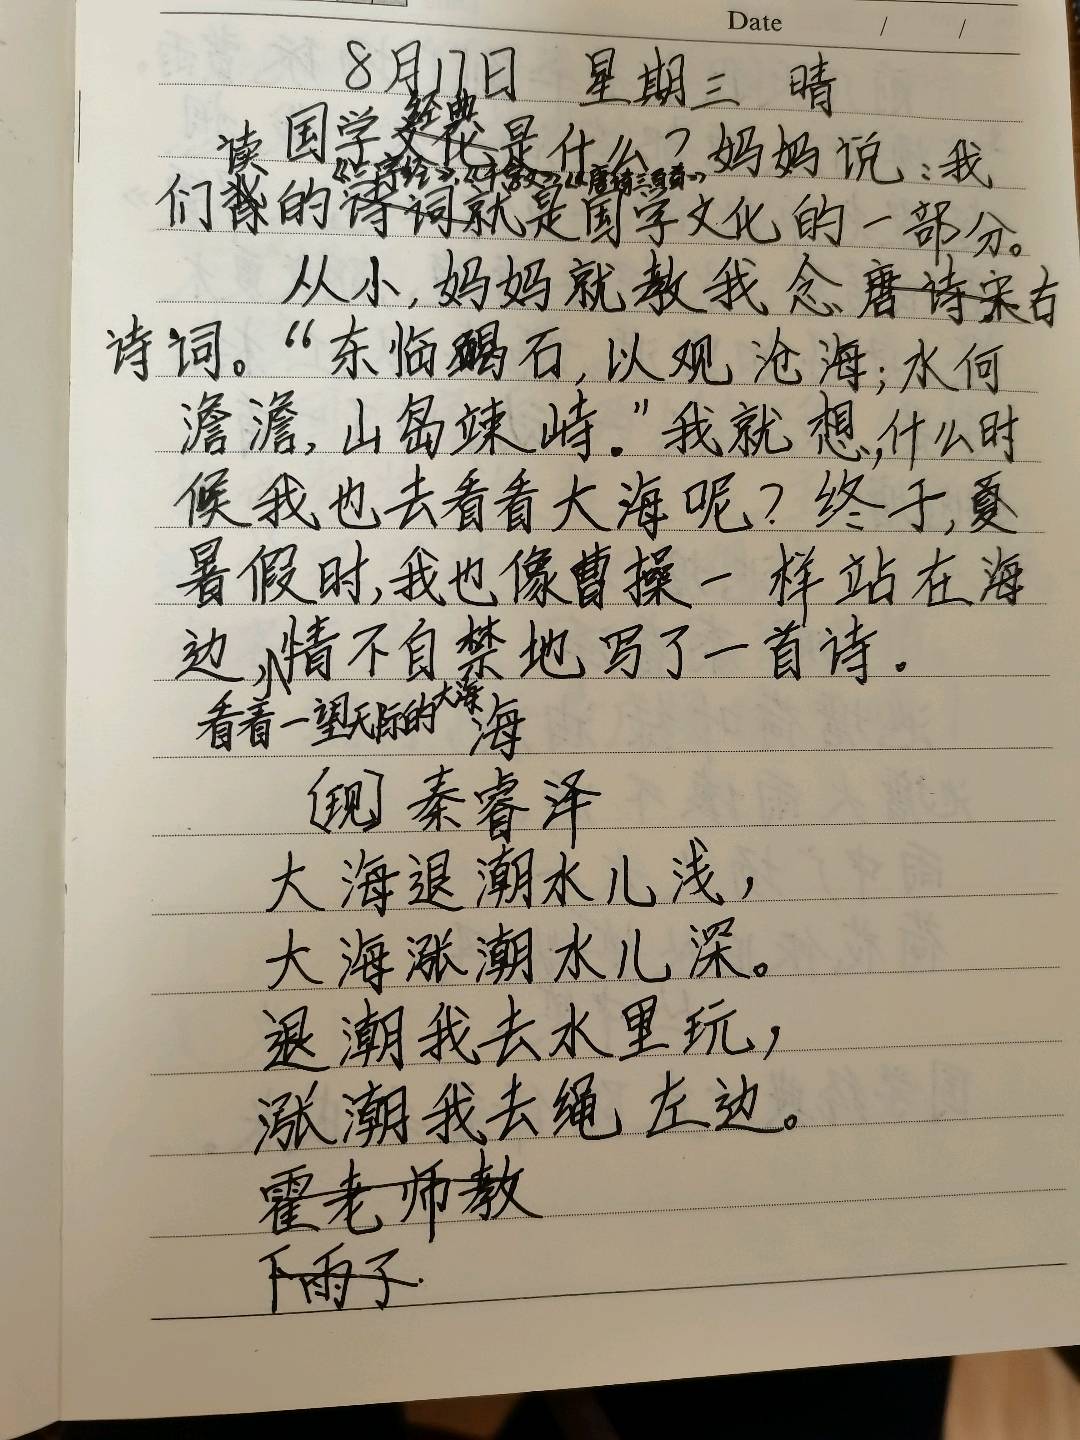 Date / /
8月17日 星期三 晴
经典
国学文化是什么?妈妈说:我
读《三字经》《千字文》《唐诗三百首》
们背的诗词就是国学文化的一部分。
从小,妈妈就教我念唐诗宋古
诗词。“东临碣石,以观沧海;水何
澹澹,山岛竦峙。”我就想,什么时
候我也去看看大海呢?终于,夏
暑假时,我也像曹操一样站在海
边,情不自禁地写了一首诗.
看着一望无际的大海
海
〔现〕秦睿泽
大海退潮水儿浅,
大海涨潮水儿深。
退潮我去水里玩,
涨潮我去绳左边。
霍老师教
下雨了.